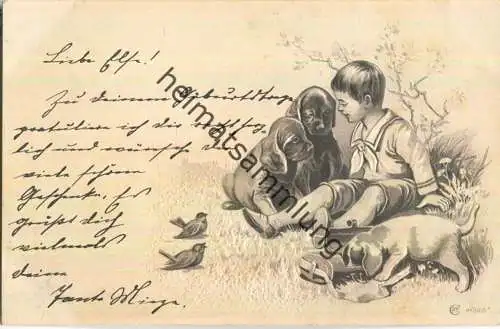 Liebe Else!
Zu deinem Geburtstage
gratuliere ich dir recht herz
lich und wünsche dir
viele schöne
Geschenke. Es
grüßt dich
vielmals
deine
Tante Mieze.
heimatsammlung